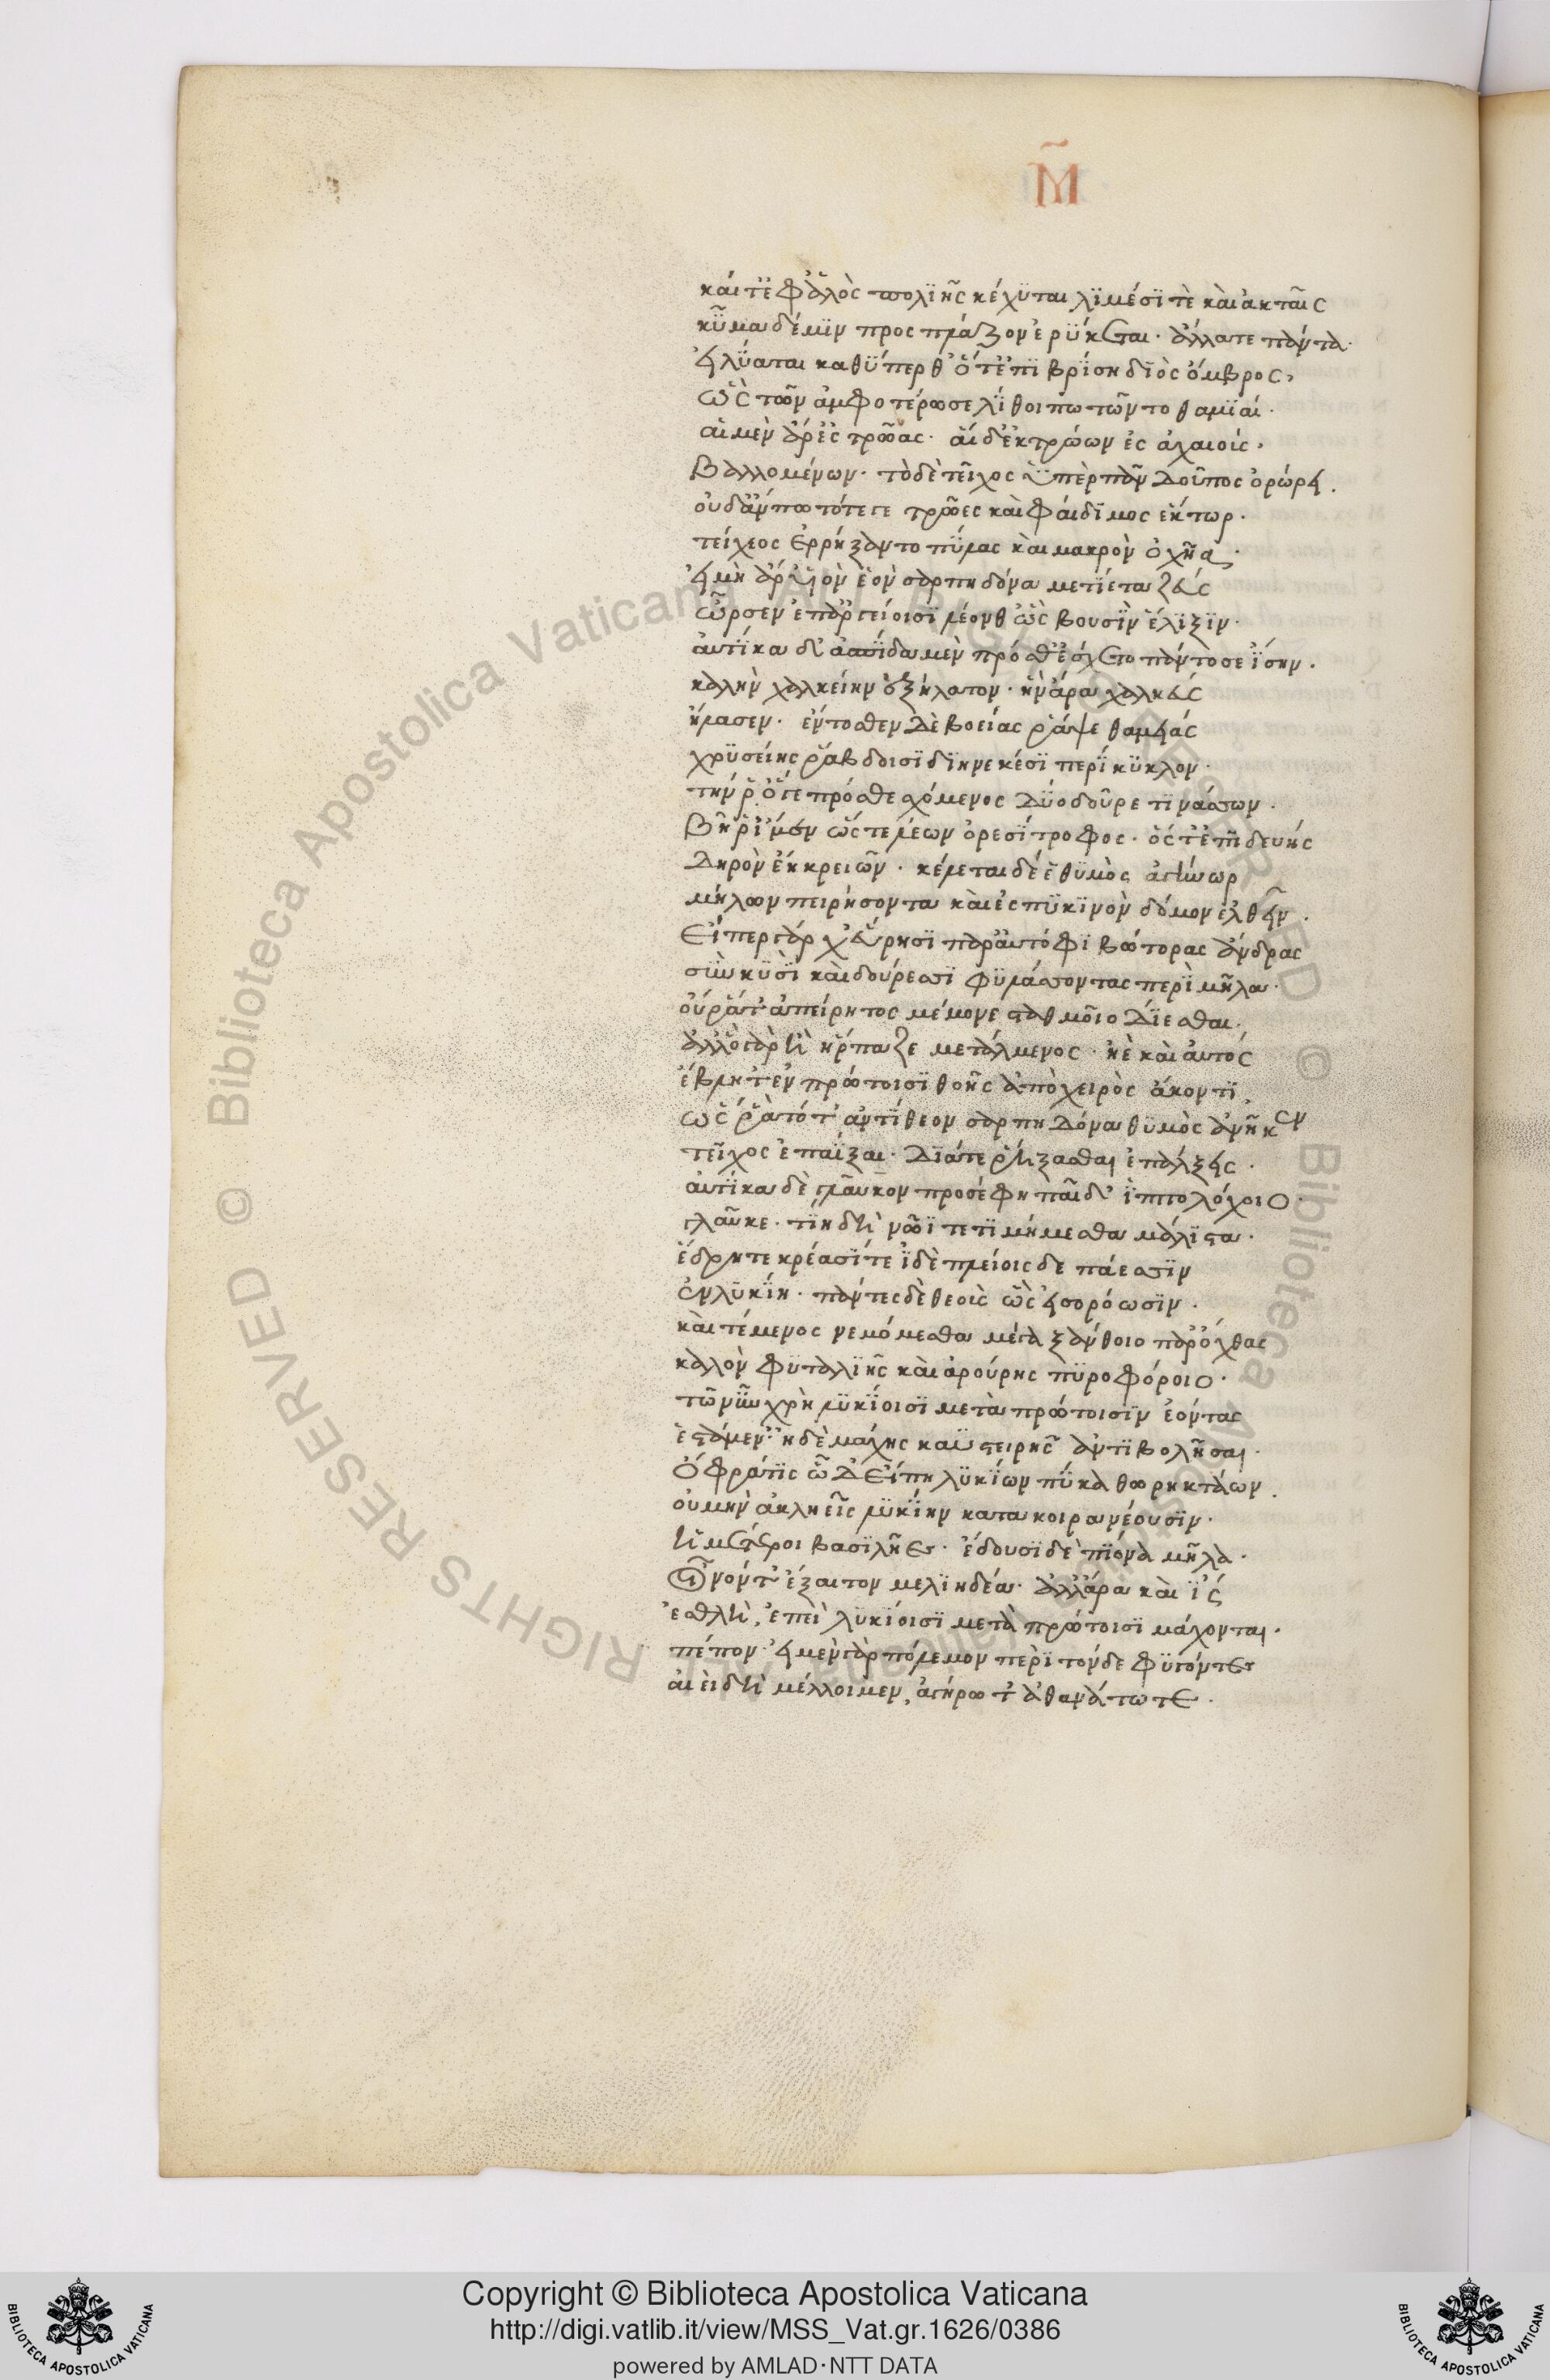 Μ̃
καί τ' ἐφ' ἁλὸς πολιῆς κέχυται λιμέσι τὲ καὶ ἀκταῖς
κῦμα δέ μιν προσπλάζον ἐρύκεται· ἄλλά τε πάντα·
εἰλύαται καθύπερθ' ὅτ' ἐπιβρίσῃ διὸς ὄμβρος,
ὣς τῶν ἀμφοτέρωσε λίθοι πωτῶντο θαμιαί·
αἱ μὲν ἄρ' ἐς τρῶας· αἱ δ' ἐκ τρώων ἐς ἀχαιούς,
βαλλομένων· τὸ δὲ τεῖχος ὕπερ πᾶν δοῦπος ὀρώρει.
οὐδ' ἄν πω τότε γε τρῶες καὶ φαίδιμος ἕκτωρ·
τείχεος ἐρρήξαντο πύλας καὶ μακρὸν ὀχῆα·
εἰ μὴ ἄρ' υἱὸν ἑὸν σαρπηδόνα μητίετα ζεύς
ὦρσεν ἐπ' ἀργείοισι λέονθ' ὣς βουσὶν ἕλιξιν·
αὐτίκα δ' ἀσπίδα μὲν πρόσθ' ἔσχετο πάντοσε ἴσην·
καλὴν χαλκείην ἐξήλατον· ἣν ἄρα χαλκεύς
ἤλασεν· ἔντοσθεν δὲ βοείας ῥάψε θαμειάς
χρυσείης ῥάβδοισι διηνεκέσι περὶ κύκλον·
τήν ῥ' ὅ γε πρόσθε σχόμενος δύο δοῦρε τινάσσων·
βῆ ῥ' ἴμεν ὥς τε λέων ὀρεσίτροφος· ὅς τ' ἐπιδευής
δηρὸν ἔῃ κρειῶν· κέλεται δέ ἑ θυμὸς ἀγήνωρ
μήλων πειρήσοντα καὶ ἐς πυκινὸν δόμον ἐλθεῖν·
εἴπερ γάρ χ' εὕρησι παρ' αὐτόφι βώτορας ἄνδρας
σὺν κυσὶ καὶ δούρεσσι φυλάσσοντας περὶ μῆλα·
οὔ ῥά τ' ἀπείρητος μέμονε σταθμοῖο δίεσθαι·
ἀλλ' ὅ γ' ἄρ' ἢ ἥρπαξε μετάλμενος· ἠὲ καὶ αὐτός
ἔβλητ' ἐν πρώτοισι θοῆς ἀπὸ χειρὸς ἄκοντι
ὥς ῥα τότ' ἀντίθεον σαρπηδόνα θυμὸς ἀνῆκεν
τεῖχος ἐπαΐξαι· διά τε ῥήξασθαι ἐπάλξεις·
αὐτίκα δὲ γλαῦκον προσέφη παῖδ' ἱππολόχοιο·
γλαῦκε· τίη δὴ νῶϊ τετιμήμεσθα μάλιστα·
ἕδρῃ τε κρέασίτε ἰδὲ πλείοις δεπάεσσιν
ἐν λυκίῃ· πάντες δὲ θεοὺς ὣς εἰσορόωσιν·
καὶ τέμενος νεμόμεσθα μέγα ξάνθοιο παρ' ὄχθας
καλὸν φυταλιῆς καὶ ἀρούρης πυροφόροιο·
τῶ νῦν χρὴ λυκίοισι μετὰ πρώτοισιν ἐόντας
ἑστάμεν· ἠδὲ μάχης καυστειρῆς ἀντιβολῆσαι·
ὄφρά τις ὧδ' εἴπῃ λυκίων πύκα θωρηκτάων
οὐ μὴν ἀκληεῖς λυκίην κατακοιρανέουσιν·
ἡμέτεροι βασιλῆες· ἔδουσι δὲ πίονα μῆλα·
οἶνόν τ' ἔξαιτον μελιηδέα· ἀλλ' ἄρα καὶ ἲς
ἐσθλή, ἐπεὶ λυκίοισι μετὰ πρώτοισι μάχονται·
πέπον· εἰ μὲν γὰρ πόλεμον περὶ τόνδε φυγόντες
αἰεὶ δὴ μέλλοιμεν, ἀγήρω τ' ἀθανάτω τε·
© Biblioteca Apostolica Vaticana ALL RIGHTS RESERVED © Biblioteca Apostolica Vaticana ALL RIGHTS RESERVED
Copyright © Biblioteca Apostolica Vaticana
http://digi.vatlib.it/view/MSS_Vat.gr.1626/0386
powered by AMLAD·NTT DATA
BIBLIOTECA APOSTOLICA VATICANA
BIBLIOTECA APOSTOLICA VATICANA